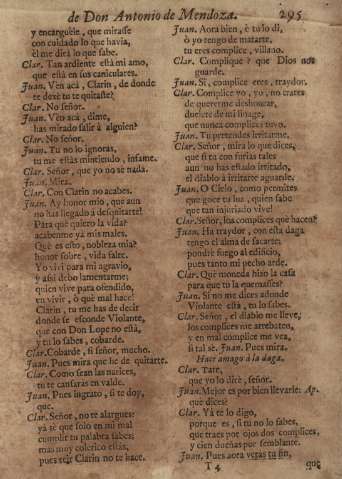 de Don Antonio de Mendoza. 295
y encarguèle, que mirasse
con cuidado lo que havia,
èl me dirà lo que sabe.
Clar. Tan ardiente està mi amo,
que està en sus caniculares.
Juan. Ven acà, Clarin, de donde
te dexè tu te quitaste?
Clar. No señor.
Juan. Ven acà, dime,
has mirado salir à alguien?
Clar. No señor.
Juan. Tu no lo ignoras,
tu me estàs mintiendo, infame.
Clar. Señor, que yo no sè nada.
Juan. Mira.
Clar. Con Clarin no acabes.
Juan. Ay honor mio, que aun
no has llegado à desquitarte!
Para què quiero la vida?
acabenme yà mis males.
Què es esto, nobleza mia?
honor sobre, vida falte.
Yo vivì para mi agravio,
y assi debo lamentarme;
quien vive para ofendido,
en vivir, ò què mal hace!
Clarin, tu me has de decir
donde se esconde Violante,
que con Don Lope no està,
y tu lo sabes, cobarde.
Clar. Cobarde, si señor, mucho.
Juan. Pues mira que he de quitarte.
Clar. Como sean las narices,
tu te cansaras en valde.
Juan. Pues ingrato, si te doy,
que.
Clar. Señor, no te alargues:
yà sè que solo en mi mal
cumplir tu palabra sabes;
mas muy colerico estàs,
pues este Clarin no te hace.
Juan. Aora bien, è tu lo dì,
ò yo tengo de matarte.
tu eres complice, villano.
Clar. Complique? que Dios nos
guarde.
Juan. Si, complice eres, traydor.
Clar. Complice yo, yo, no trates
de quererme deshonrar,
duelete de mi linage,
que nunca complices tuvo.
Juan. Tu pretendes irritarme.
Clar. Señor, mira lo que dices,
que si tà con furias tales
aun no has estado irritado,
el diablo à irritarte aguarde.
Juan. O Cielo, como permites
que goce tu luz, quien sabe
que tan injuriado vive!
Clar. Señor, los complices que hacen?
Juan. Ha traydor, con esta daga
tengo el alma de sacarte:
pondrè fuego al edificio,
pues tanto mi pecho arde.
Clar. Què moneda hizo la casa
para que tu la quemasses?
Juan. Si no me dices adonde
Violante està, tu lo sabes.
Clar. Señor, el diablo me lleve,
los complices me arrebaten,
y en mal complice me vea,
si tal sè. Juan. Pues mira.
Hace amago à la daga.
Clar. Tate,
que yo lo dirè, señor.
Juan. Mejor es por bien llevarle: Ap.
què dices?
Clar. Yà te lo digo,
porque es, si tu no lo sabes,
que traes por ojos dos complices,
y cien dueñas por semblante.
Juan. Pues aora veràs tu fin,
T 4 que